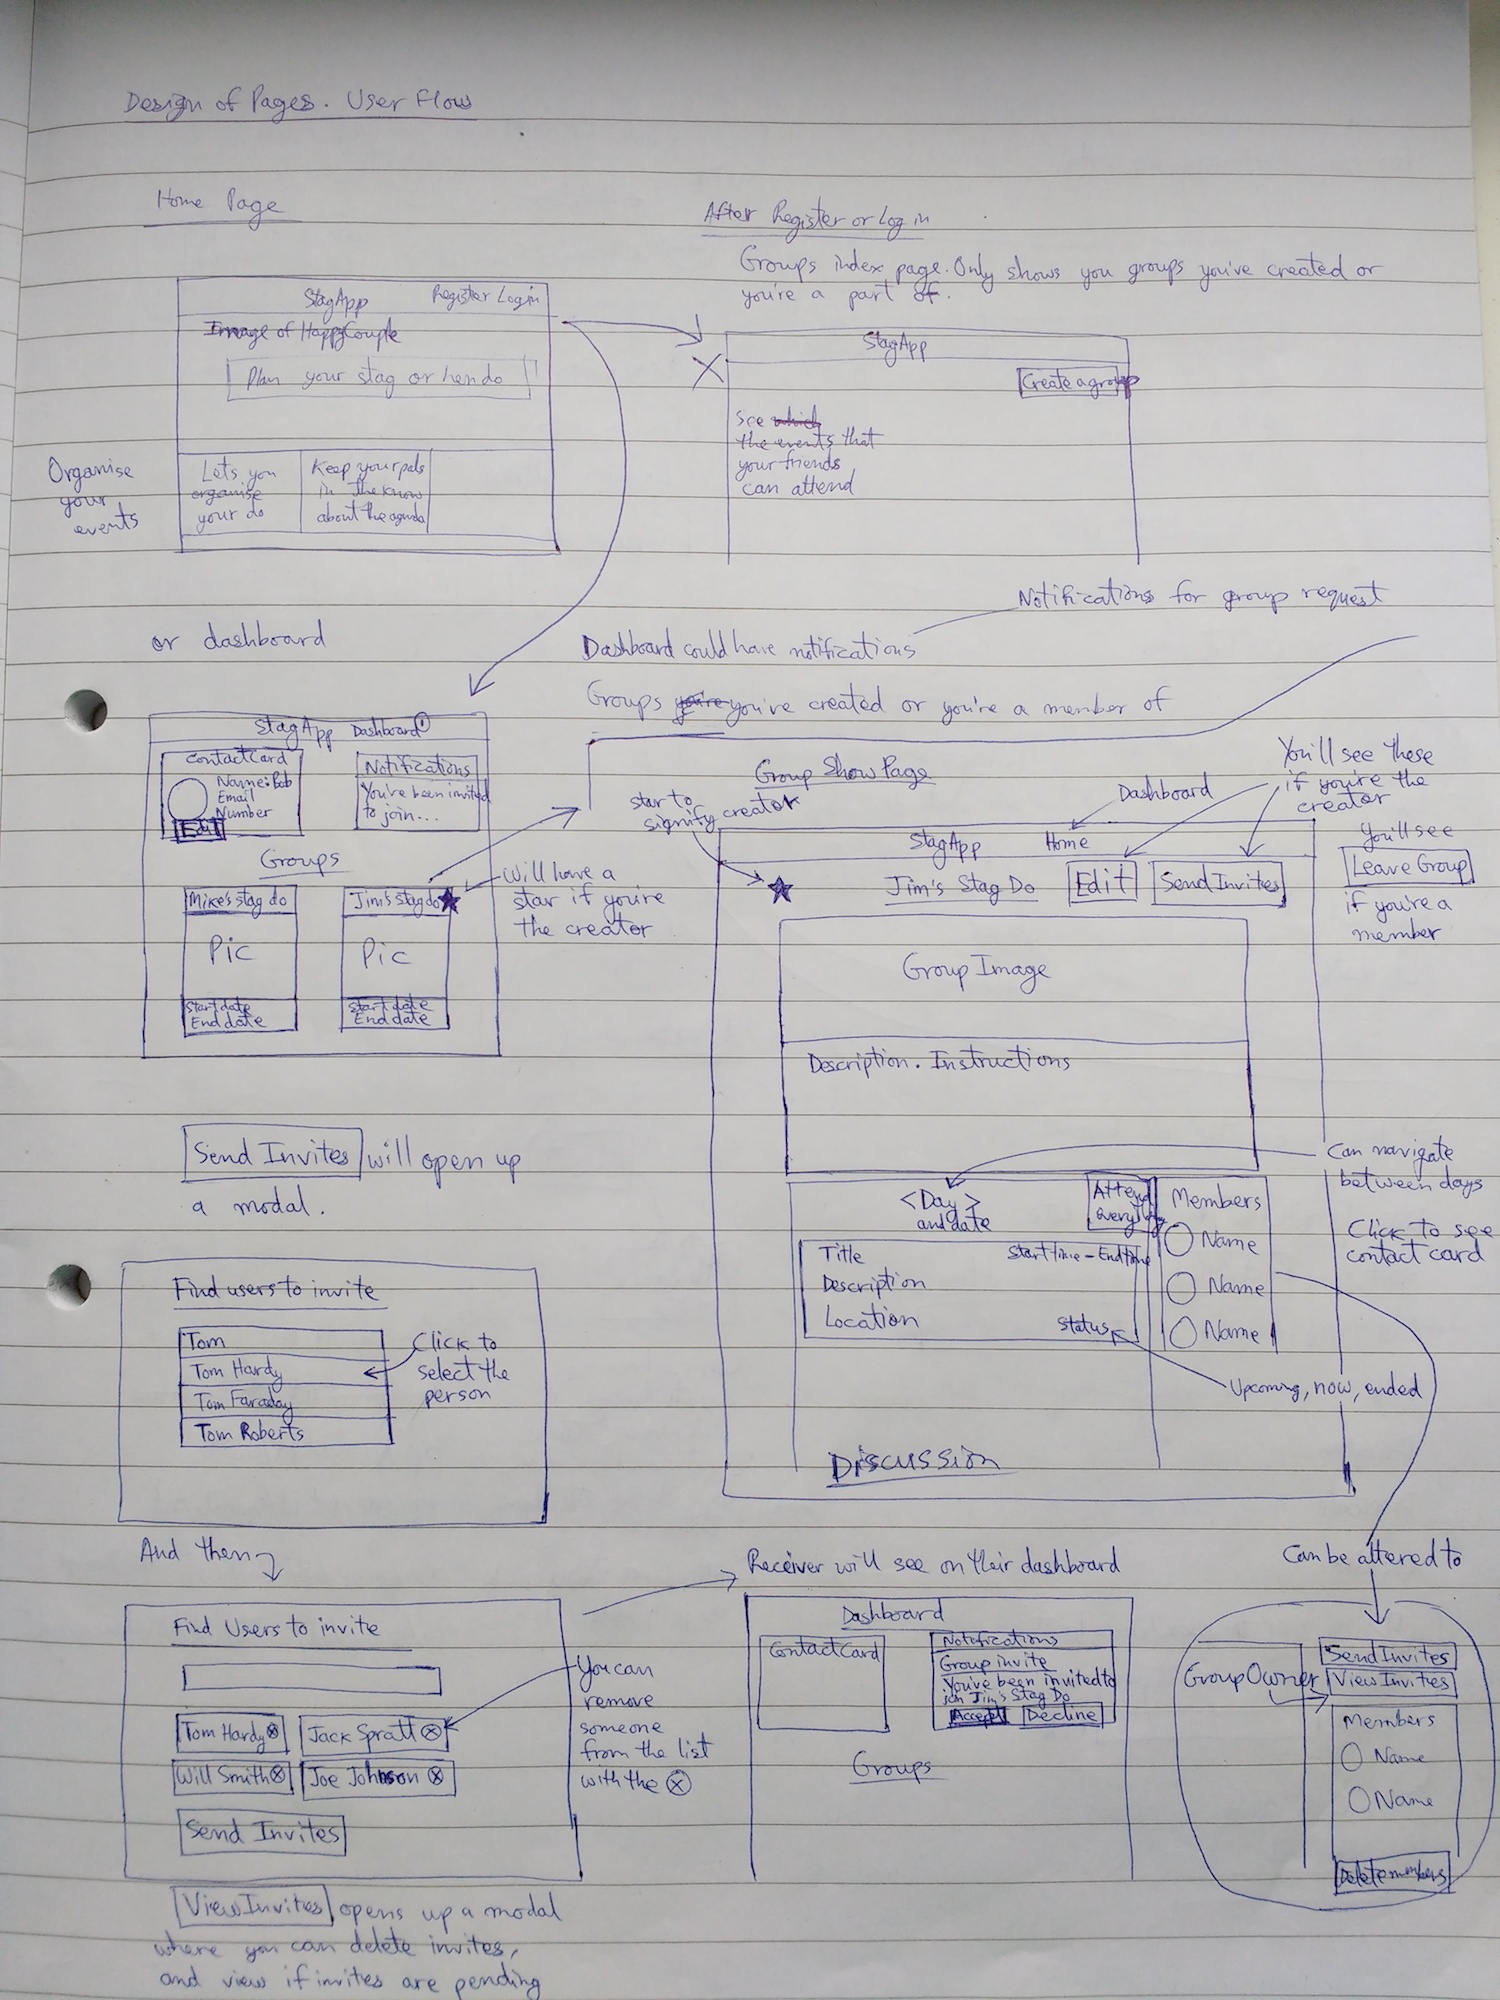 Design of Pages. User Flow
Home Page
StagApp Register Login
Image of Happy Couple
Plan your stag or hen do
Organise
your
events
Lets you
organise
your do
Keep your pals
in the know
about the agenda
After Register or Log in
Groups index page. Only shows you groups you've created or
you're a part of.
StagApp
Create a group
See which
the events that
your friends
can attend
or dashboard
StagApp Dashboard
Contact Card
Name: Bob
Email
Number
Edit
Notifications
You've been invited
to join...
Groups
Mike's stag do
Pic
Start date
End date
Jim's stag do
Pic
Start date
End date
Will have a
star if you're
the creator
Notifications for group request
Dashboard could have notifications
Groups you're you've created or you're a member of
Group Show Page
star to
signify creator
Dashboard
You'll see these
if you're the
creator
StagApp Home
Jim's Stag Do Edit Send Invites
You'll see
Leave Group
if you're a
member
Group Image
Description. Instructions
<Day>
and date
Attend
everything
Title Start time - End time
Description
Location
Status
Members
Name
Name
Name
Can navigate
between days
Click to see
contact card
Upcoming, now, ended
Discussion
Send Invites will open up
a modal.
Find users to invite
Tom
Tom Hardy
Tom Faraday
Tom Roberts
Click to
select the
person
And then
Find Users to invite
Tom Hardy ⊗ Jack Spratt ⊗
Will Smith ⊗ Joe Johnson ⊗
Send Invites
You can
remove
someone
from the list
with the ⊗
View Invites opens up a modal
where you can delete invites,
and view if invites are pending
Receiver will see on their dashboard
Dashboard
Contact Card
Notifications
Group invite
You've been invited to
join Jim's Stag Do
Accept Decline
Groups
Can be altered to
Group Owner
Send Invites
View Invities
Members
Name
Name
Delete members